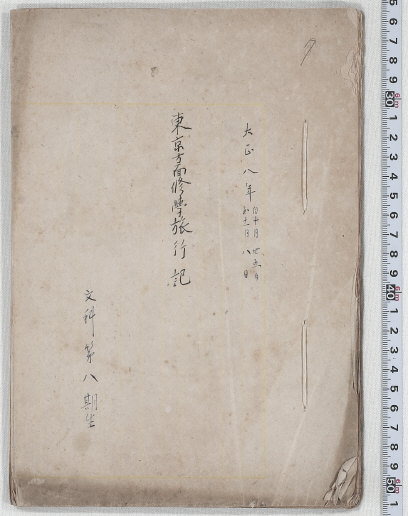 大正八年 自十月廿五日
至十一月八日
東京方面修學旅行記
文科第八期生
5 6 7 8 9 30 1 2 3 4 5 6 7 8 9 40 1 2 3 4 5 6 7 8 9 50 1